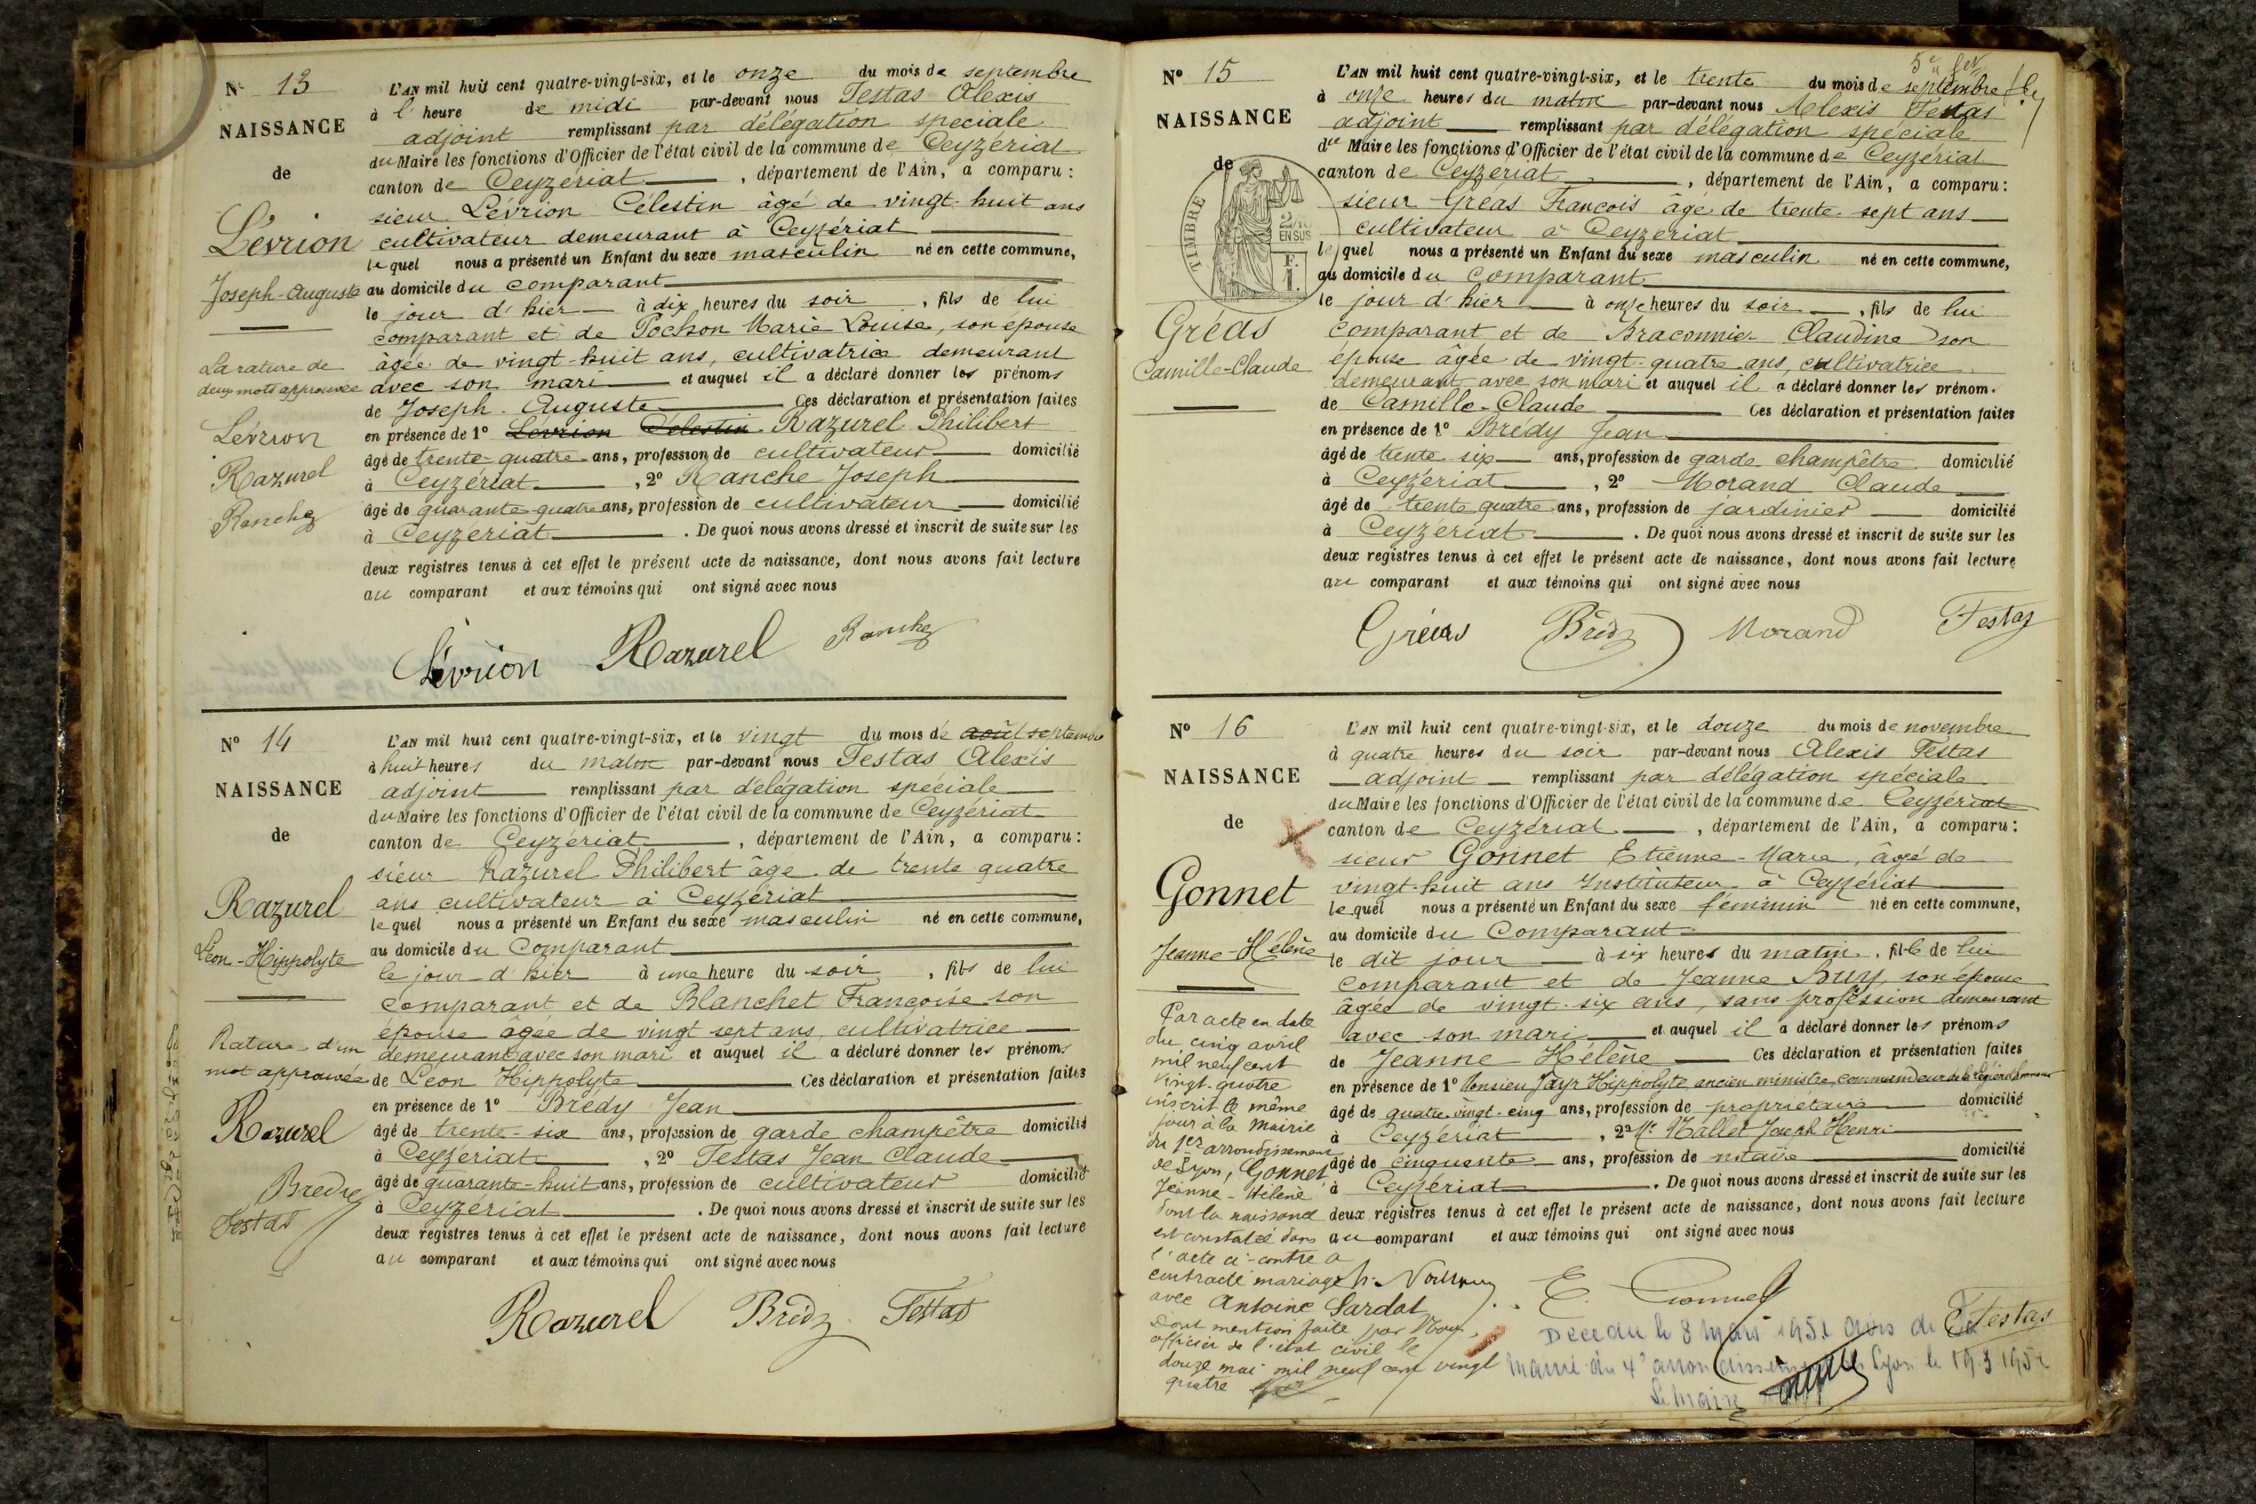 N° 13
NAISSANCE
de
Lévrion
Joseph-Auguste
La rature de
deux mots approuvée
Lévrion
Razurel
Ranche
L'AN mil huit cent quatre-vingt-six, et le onze du mois de septembre
à l' heure de midi par-devant nous Testas Alexis
adjoint remplissant par délégation spéciale
du Maire les fonctions d'Officier de l'état civil de la commune de Ceyzériat
canton de Ceyzériat, département de l'Ain, a comparu :
sieur Lévrion Célestin âgé de vingt-huit ans
cultivateur demeurant à Ceyzériat
lequel nous a présenté un Enfant du sexe masculin né en cette commune,
au domicile du comparant
le jour d'hier à dix heures du soir, fils de lui
comparant et de Pochon Marie Louise, son épouse
âgée de vingt-huit ans, cultivatrice demeurant
avec son mari et auquel il a déclaré donner les prénoms
de Joseph-Auguste Ces déclaration et présentation faites
en présence de 1° Levrion Célestin Razurel Philibert
âgé de trente-quatre ans, profession de cultivateur domicilié
à Ceyzériat, 2° Ranche Joseph
âgé de quarante quatre ans, profession de cultivateur domicilié
à Ceyzériat. De quoi nous avons dressé et inscrit de suite sur les
deux registres tenus à cet effet le présent acte de naissance, dont nous avons fait lecture
au comparant et aux témoins qui ont signé avec nous
Lévrion Razurel Ranche
N° 14
NAISSANCE
de
Razurel
Léon-Hippolyte
Rature d'un
mot approuvée
Razurel
Testas
L'AN mil huit cent quatre-vingt-six, et le vingt du mois de août septembre
à huit heures du matin par-devant nous Testas Alexis
adjoint remplissant par délégation spéciale
du Maire les fonctions d'Officier de l'état civil de la commune de Ceyzériat
canton de Ceyzériat, département de l'Ain, a comparu :
sieur Razurel Philibert âgé de trente quatre
ans cultivateur à Ceyzériat
lequel nous a présenté un Enfant du sexe masculin né en cette commune,
au domicile du Comparant
le jour d'hier à une heure du soir, fils de lui
comparant et de Blanchet Françoise son
épouse âgée de vingt sept ans, cultivatrice
demeurant avec son mari et auquel il a déclaré donner les prénoms
de Léon Hippolyte Ces déclaration et présentation faites
en présence de 1° Brédy Jean
âgé de trente-six ans, profession de garde champêtre domicilié
à Ceyzériat, 2° Testas Jean Claude
âgé de quarante-huit ans, profession de cultivateur domicilié
à Ceyzériat. De quoi nous avons dressé et inscrit de suite sur les
deux registres tenus à cet effet le présent acte de naissance, dont nous avons fait lecture
au comparant et aux témoins qui ont signé avec nous
Razurel Brédy Testas
N° 15
NAISSANCE
de
TIMBRE
EN SUS
F.
1.
Gréas
Camille-Claude
L'AN mil huit cent quatre-vingt-six, et le trente du mois de septembre
à onze heures du matin par-devant nous Alexis Testas
adjoint remplissant par délégation spéciale
du Maire les fonctions d'Officier de l'état civil de la commune de Ceyzériat
canton de Ceyzériat, département de l'Ain, a comparu :
sieur Gréas François âgé de trente-sept ans
cultivateur à Ceyzériat
lequel nous a présenté un Enfant du sexe masculin né en cette commune,
au domicile du comparant
le jour d'hier à onze heures du soir, fils de lui
comparant et de Braconnier Claudine son
épouse âgée de vingt-quatre ans, cultivatrice
demeurant avec son mari et auquel il a déclaré donner les prénom.
de Camille-Claude Ces déclaration et présentation faites
en présence de 1° Brédy Jean
âgé de trente six ans, profession de garde champêtre domicilié
à Ceyzériat, 2° Morand Claude
âgé de trente quatre ans, profession de jardinier domicilié
à Ceyzériat. De quoi nous avons dressé et inscrit de suite sur les
deux registres tenus à cet effet le présent acte de naissance, dont nous avons fait lecture
au comparant et aux témoins qui ont signé avec nous
Gréas Brédy Morand Testas
N° 16
NAISSANCE
de
Gonnet
Jeanne-Hélène
Par acte en date
du cinq avril
mil neuf cent
vingt-quatre
inscrit le même
jour à la Mairie
du 1er arrondissement
de Lyon, Gonnet
Jeanne-Hélène
dont la naissance
est constatée dans
l'acte ci-contre a
contracté mariage
avec Antoine Sardat
Dont mention faite par Nous,
officier de l'état civil le
douze mai mil neuf cent vingt
quatre
L'AN mil huit cent quatre-vingt-six, et le douze du mois de novembre
à quatre heures du soir par-devant nous Alexis Testas
adjoint remplissant par délégation spéciale
du Maire les fonctions d'Officier de l'état civil de la commune de Ceyzériat
canton de Ceyzériat, département de l'Ain, a comparu :
sieur Gonnet Etienne-Marie, âgé de
vingt-huit ans Instituteur à Ceyzériat
lequel nous a présenté un Enfant du sexe féminin né en cette commune,
au domicile du Comparant
le dit jour à six heures du matin, fille de lui
comparant et de Jeanne Buy, son épouse
âgée de vingt-six ans, sans profession demeurant
avec son mari et auquel il a déclaré donner les prénoms
de Jeanne-Hélène Ces déclaration et présentation faites
en présence de 1° Monsieur Jayr Hippolyte ancien ministre, commandeur de la légion d'honneur
âgé de quatre-vingt-cinq ans, profession de propriétaire domicilié
à Ceyzériat, 2° Mr Mallet Joseph Henri
âgé de cinquante ans, profession de notaire domicilié
à Ceyzériat. De quoi nous avons dressé et inscrit de suite sur les
deux registres tenus à cet effet le présent acte de naissance, dont nous avons fait lecture
au comparant et aux témoins qui ont signé avec nous
E. Gonnet
Testas
Décédée le 8 mars 1952 avis de la
Mairie du 4e arrondissement de Lyon le 19.3 1952
Le Maire